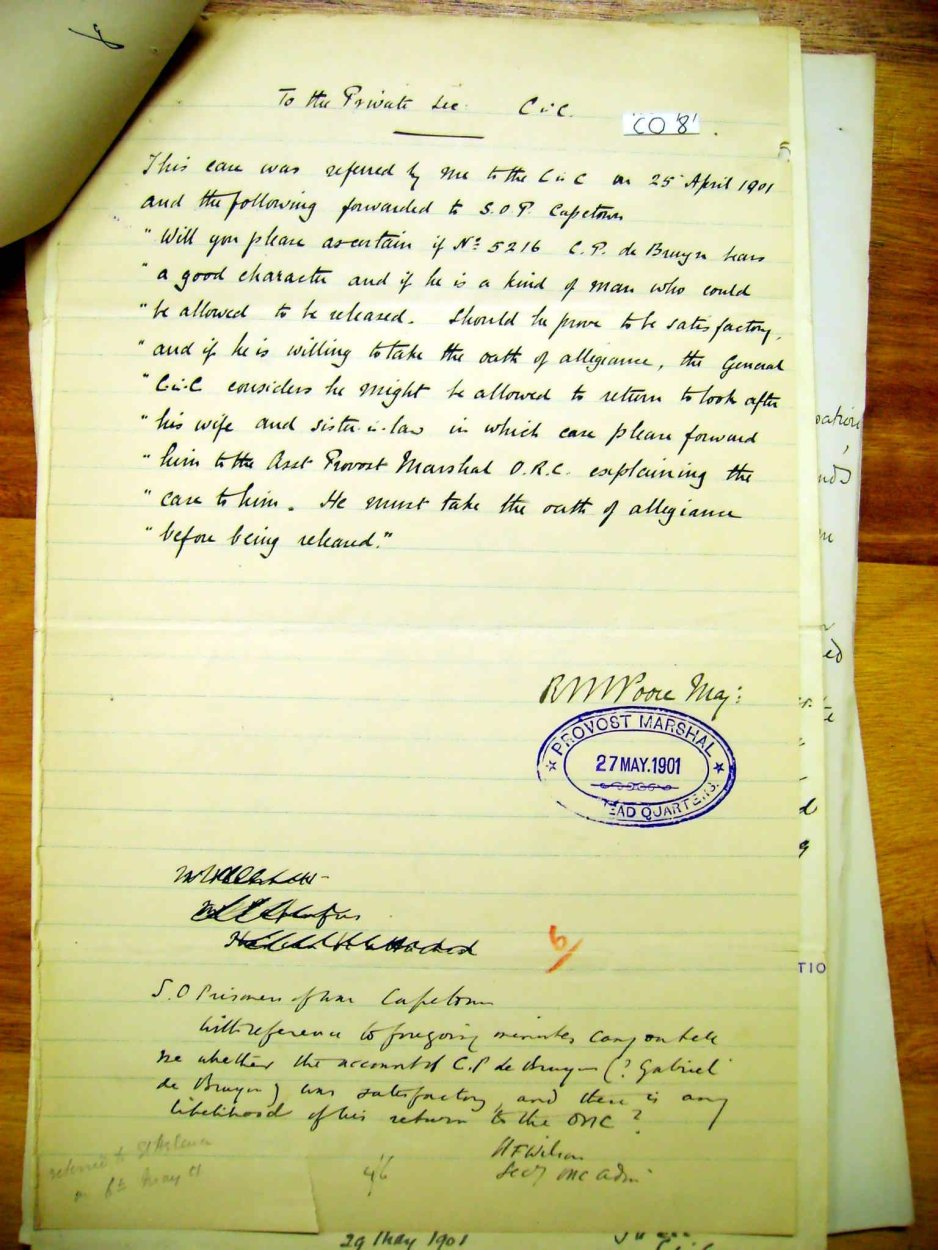 To the Private Sec: C-i-C.
'CO '8'
5
This case was referred by me to the C-in-C on 25 April 1901
and the following forwarded to S.O.P. Capetown
" Will you please ascertain if No 5216 C.P. de Bruyn bears
" a good character and if he is a kind of man who could
" be allowed to be released. Should he prove to be satisfactory,
" and if he is willing to take the oath of allegiance, the General
" C-in-C considers he might be allowed to return to look after
" his wife and sister-in-law in which case please forward
" him to the Asst Provost Marshal O.R.C. explaining the
" case to him. He must take the oath of allegiance
" before being released."
R M Poore Maj:
PROVOST MARSHAL
27 MAY.1901
HEAD QUARTERS.
6/
S.O Prisoners of war Capetown
With reference to foregoing minutes can you tell
me whether the account of C.P de Bruyn (? Gabriel
de Bruyn) was satisfactory and there is any
likelihood of his return to the ORC ?
H F Wilson
Secy ORC Adm
referred to St Helena
on 6th May 01
29 May 1901
TIO